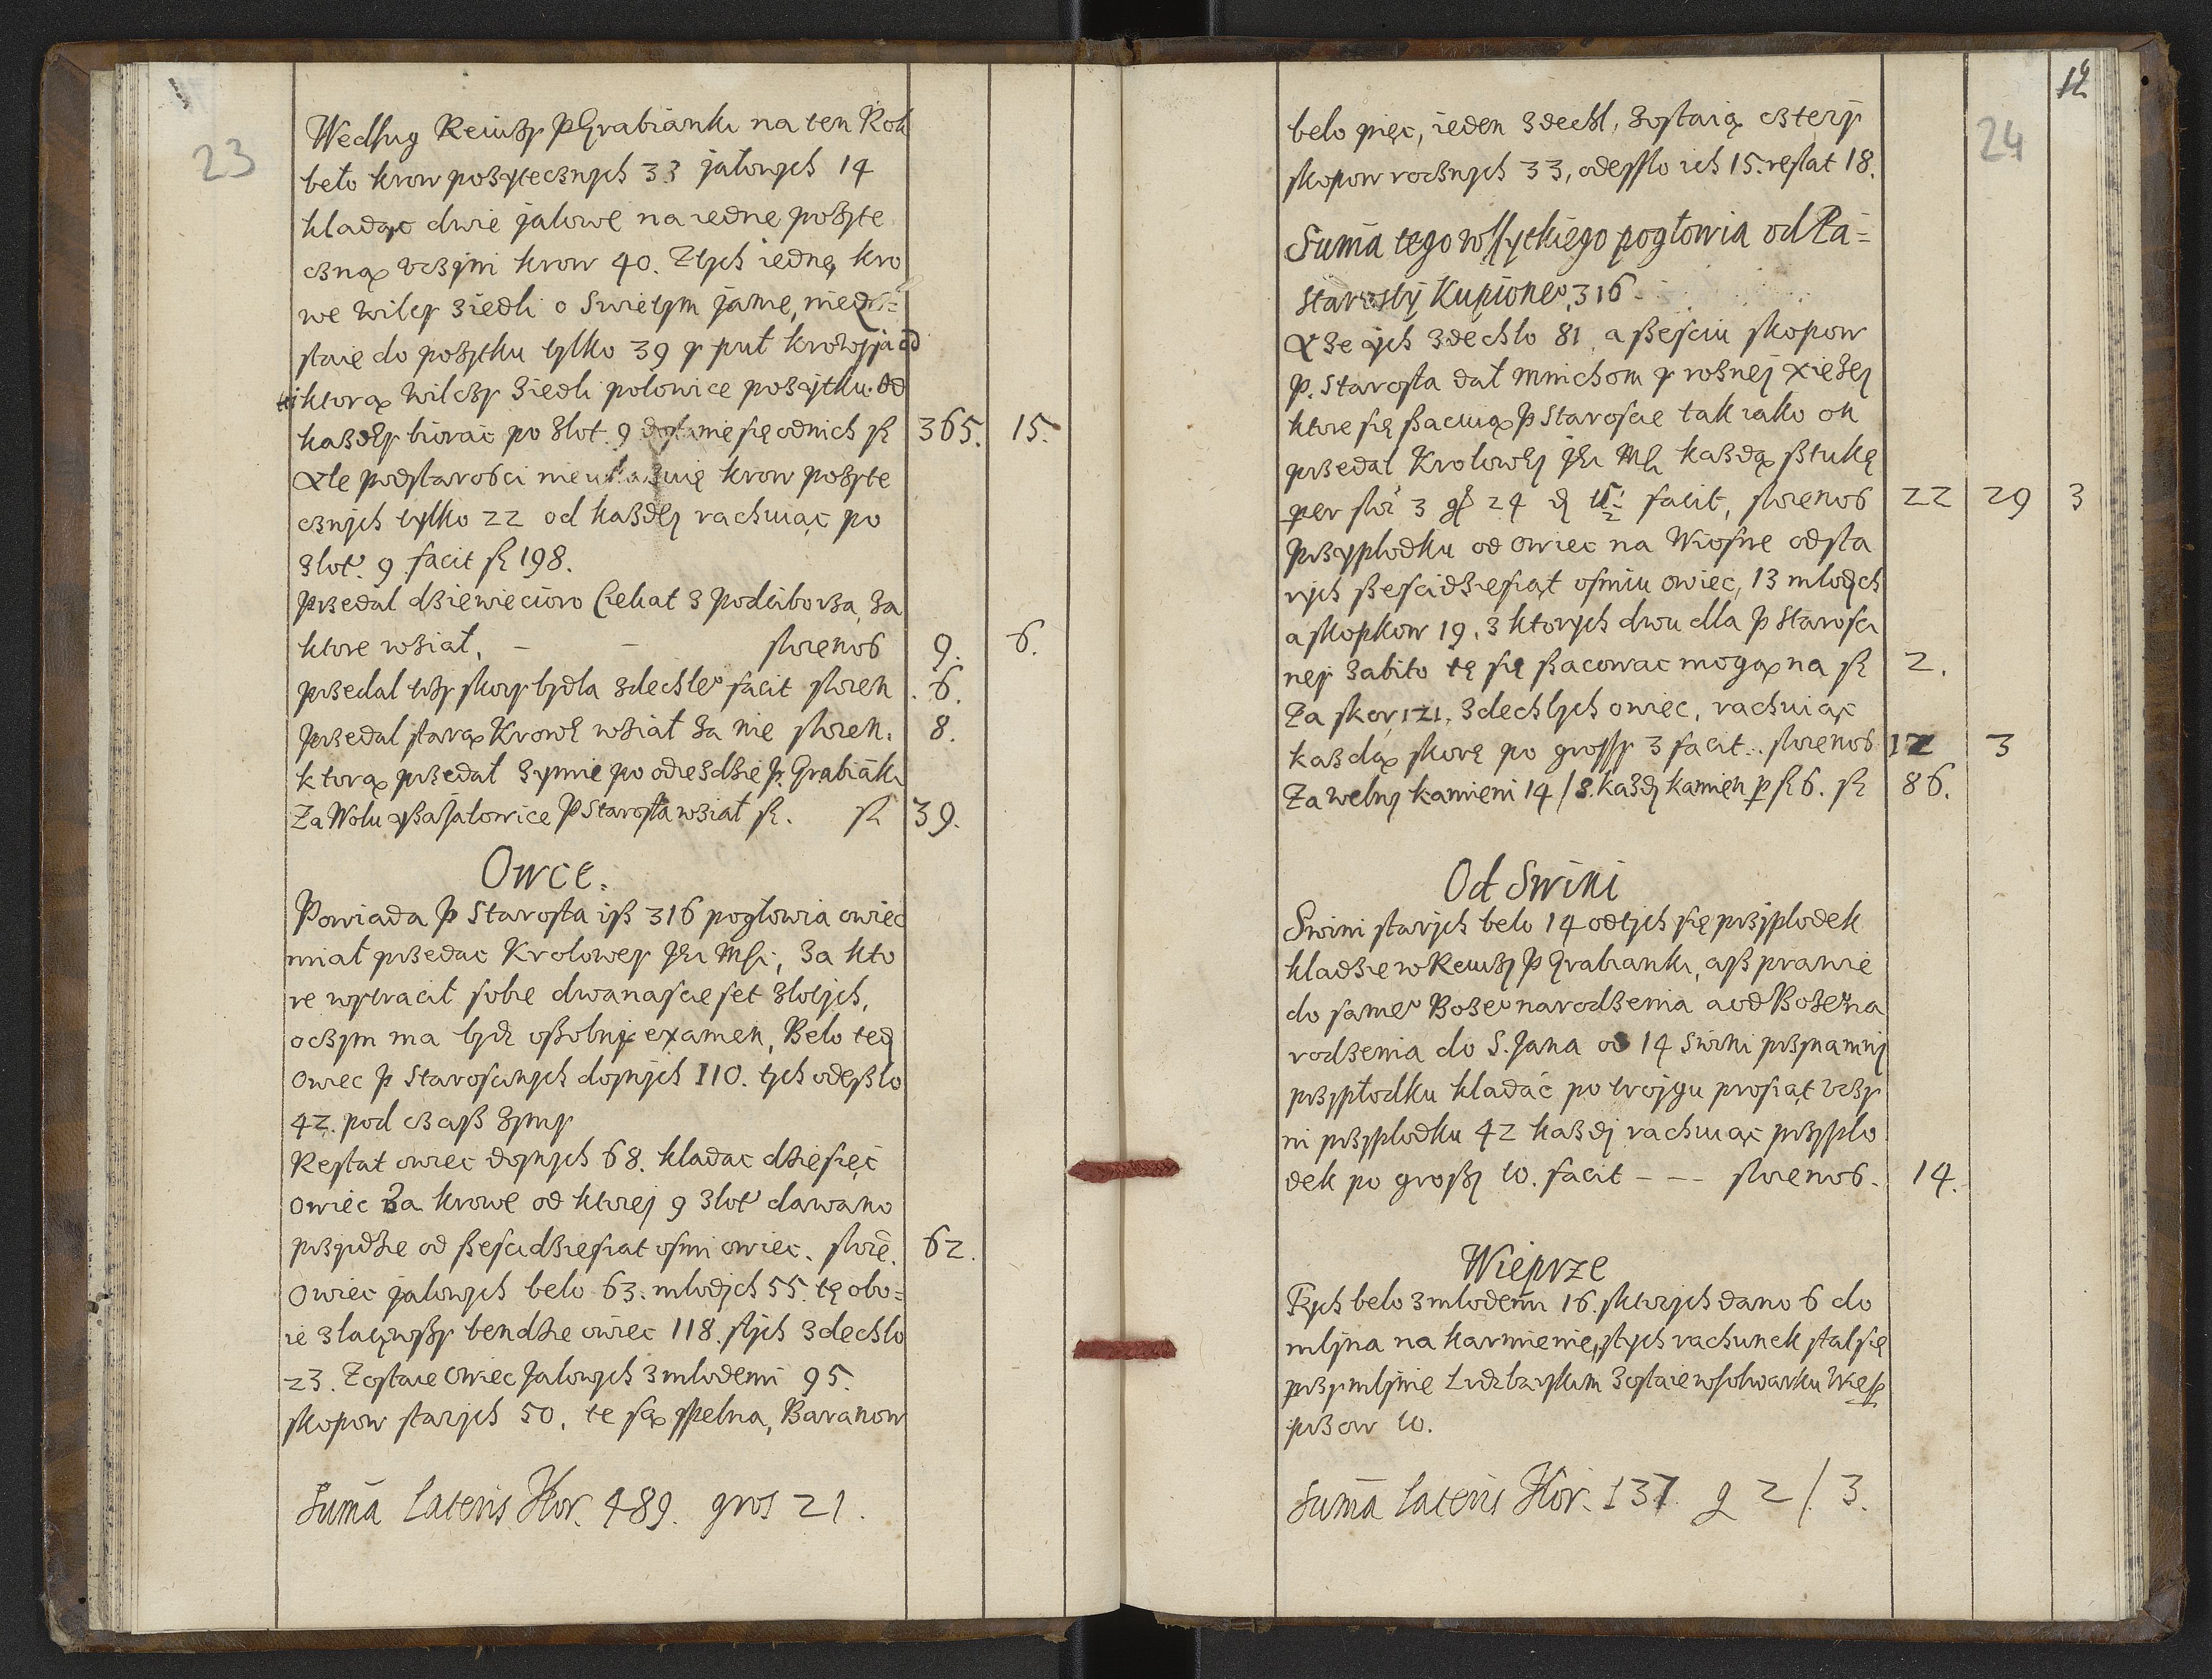 23
Wedlug Reiuzy P Grabianki na ten Rok
beło krow pożytecznych 33 jałowych 14
kladąc dwie jalowe na iednę pożyte
czną vczÿni krow 40. Ztych iednę kro
we wilcy ziedli o Swiętym jamę,
staię do pożytku tylko 39 y puł krowy
ktorą Wilczy ziedli polowice pożÿtku. Od
każdey biorąc po złot. 9 dostanie się odnich fl 365. 15.
Ale podstarosci nie ukazuię krow pożyte
cznych tylko 22 od każdey rachuiąc po
zlot. 9. facit fl 198.
Przedal dziewięcioro Cieliat z Podliborza, za
ktore wział, - - florenos 9. 6.
przedal trzy skory bydla zdechłeo facit floren. 6.
Przedal starą Krowę wział za nię floren. 8.
ktorą przedał zymie po odieździe P. Grabiāki
Za Wolu y za Jałowice P Starosta wział fl. fl 39.
Owce.
Powiada P Starosta iß 316 pogłowia owiec
miał przedac Krolowey Jei Mści, za kto
re wytracił sobie dwanascie set złotych,
oczym ma bydz osobny examen, Belo tedy
Owiec P Staroscinych doynych 110. tych odeßlo
42. pod czaß zymy
Restat owiec doynych 68. kladac dziesięć
owiec za krowe od ktorej 9 złot dawano
przydzie od ßescidziesiat osmi owiec. florē. 62.
Owiec jalowych belo 63. mlodych 55. tę obo=
ie zlączywßy bendzie owiec 118. stych zdechlo
23. Zostaie Owiec Jalowych z mlodemi 95.
skopow starych 50, te są spelna, Baranow
Sumā Lateris Flor. 489. gros 21.
12
24
belo pięc, ieden zdechl, zostaią czterÿ
skopow rocznych 33, odessło ich 15. restat 18.
Sumā tego wssytkiego pogłowia od Pā=
Starostÿ Kupioneo 316
A że ÿch zdechło 81, a ßesciu skopow
P. Starosta dał Mnichom y rożnej xięzej
ktore się ßacuią P Staroscie tak iako on
przedał Krolowej Jei Mści każdą ßtukę
per flor 3 gß 24 facit, florenos 22 29 3
Przyplodku od Owiec na Wiosnę odsta
rych ßescidziesiąt osmiu owiec, 13 mlodych
a skopkow 19, z ktorych dwu dla P Starosci
ney zabito tę się ßacowac mogą na fl 2.
Za skor 121, zdechlych owiec, rachuiąc
każdą skorę po grossy 3 facit.. florenos 12 3
Za welny kamieni 14/8. każdy kamien p fl 6. fl 86.
Od Swini
Swini starych belo 14 odtych się przÿplodek
kladzie w Reiuzy P Grabianki, aß prawie
do sameo Bożeo narodzenia a od Bożeo na
rodzenia do S. Jana od 14 swini przynamnij
przypłodku kladać po troygu prosiąt vczy
ni przyplodku 42 każdy rachuiąc przyplo
dek po großy 10. facit - - - florenos. 14.
Wieprze
Tych belo z mlodemi 16. s ktorych dano 6 do
mlyna na karmienie, s tych rachunek stal się
przy mlynie Lidzbarskim zostaie wfolwarku Wie
przow 10.
Sumā Lateris Flor. 137. g 2/3.